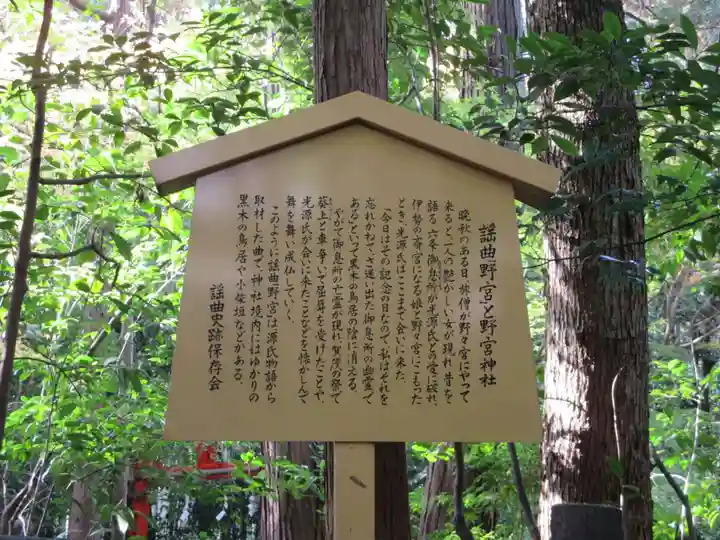 謡曲野宮と野宮神社
晩秋のある日、旅僧が野々宮にやって
来ると一人の艶かしい女が現れ、昔を
語る。六条御息所が光源氏との愛に破れ、
伊勢の斎宮になる娘と野々宮にこもった
とき、光源氏はここまで会いに来た。
「今日はその記念の日なので、私はそれを
忘れかねてさ迷い出た御息所の幽霊で
ある」といって黒木の鳥居の陰に消える。
やがて御息所の亡霊が現れ、賀茂の祭で
葵上と車争いで屈辱を受けたことや、
光源氏が会いに来たことなどを懐かしんで
舞を舞い成仏していく。
このように謡曲「野宮」は源氏物語から
取材した曲で、神社境内にはゆかりの
黒木の鳥居や小柴垣などがある。
謡曲史跡保存会